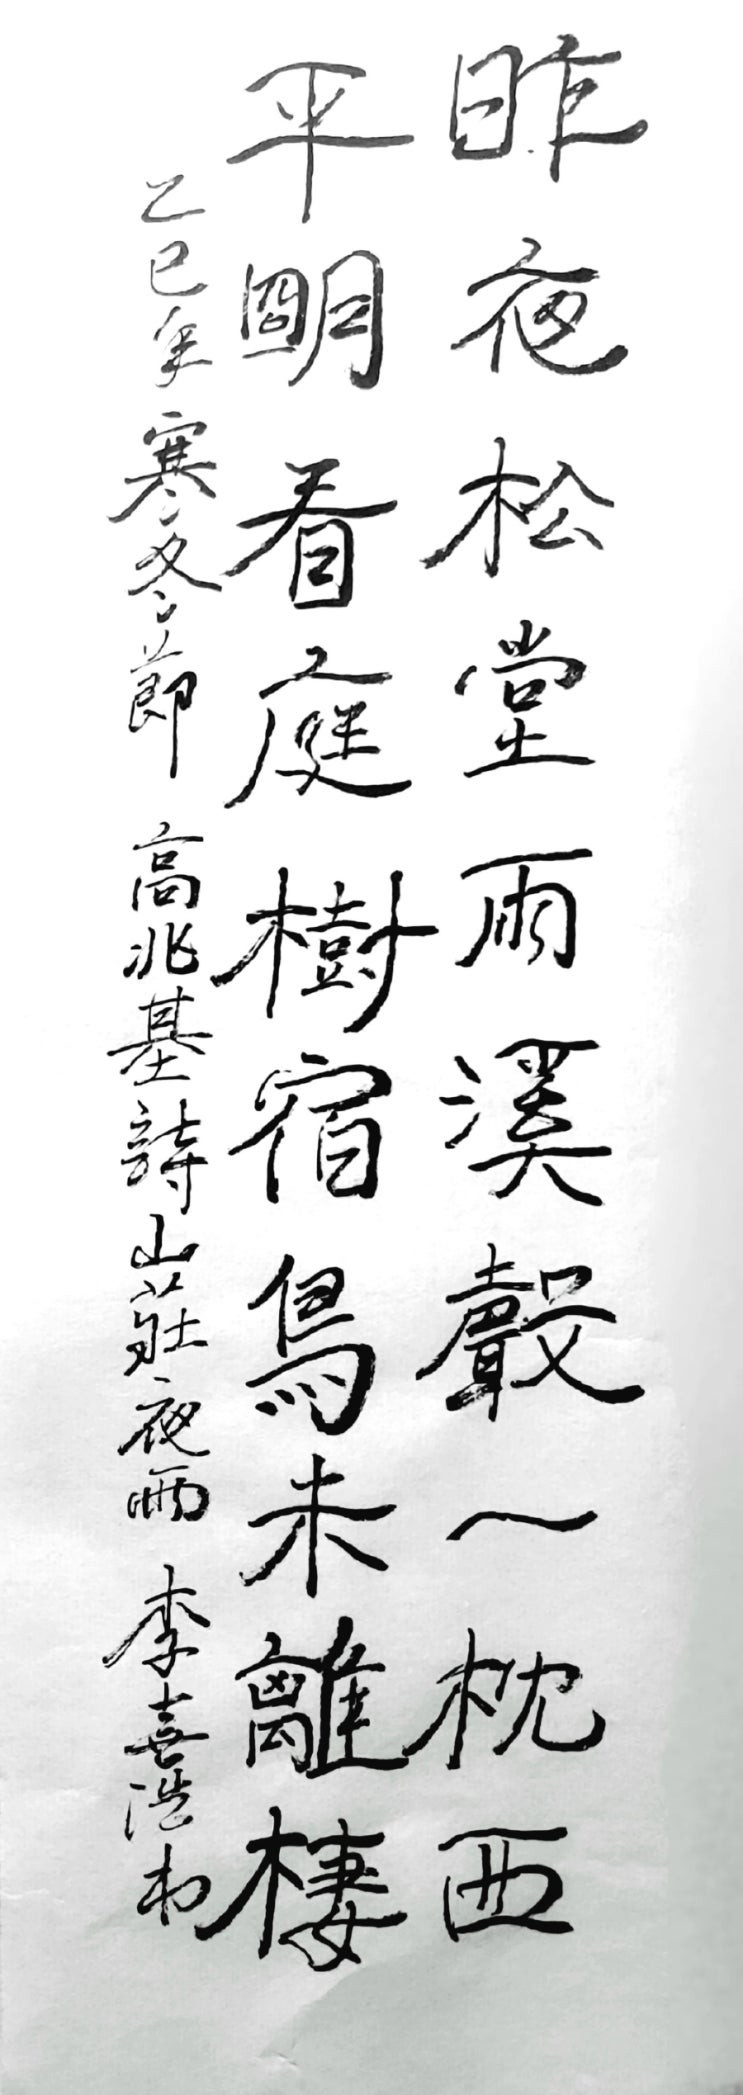 昨夜松堂雨溪聲一枕西
平明看庭樹宿鳥未離棲
乙巳年寒冬節 高兆基詩山莊夜雨 李喜浩书